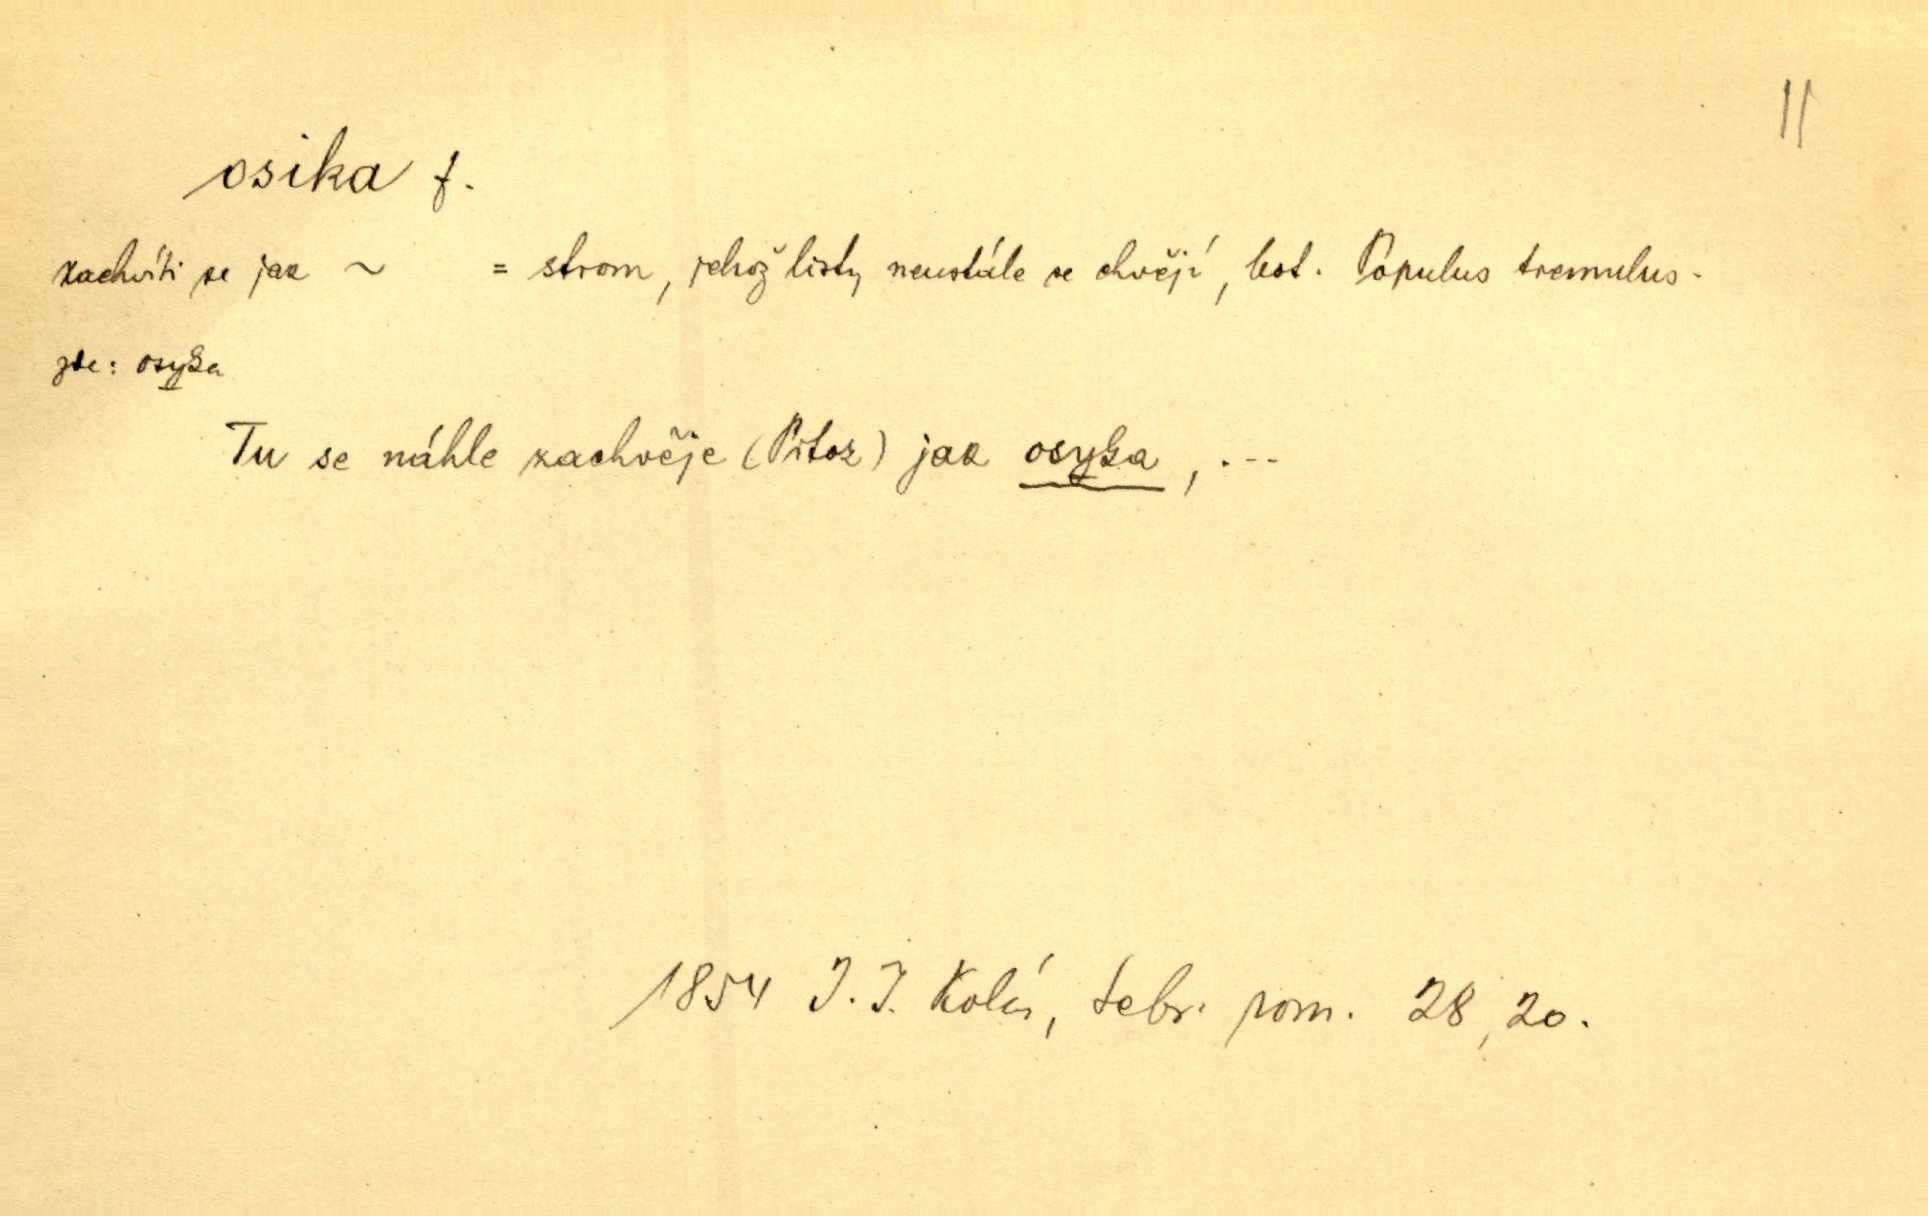 11
osika f.
zachvíti se jak ~ = strom, jehož listy neustále se chvějí, bot. Populus tremulus.
zde: osyka
Tu se náhle zachvěje (Pitoz) jak osyka, ...
1854 J. J. Kolár, sebr. rom. 28, 20.